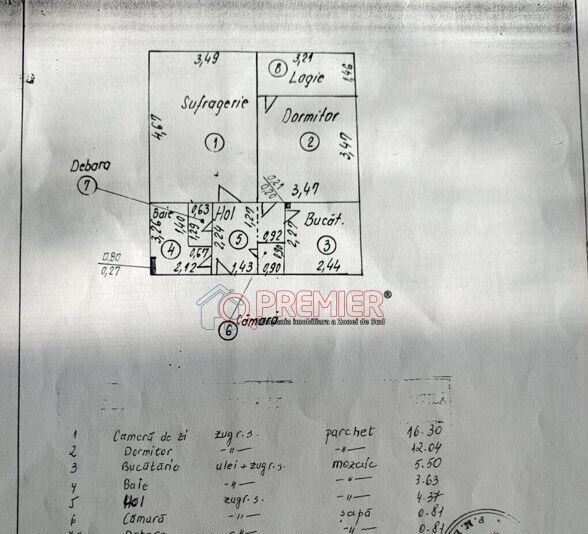 3,49
3,21
8
Logie
1,46
Sufragerie
Dormitor
4,67
1
2
3,47
Debara
7
0,21
0,20
3,47
Baie
0,63
Hol
1,27
Bucăt.
3,26
1,40
1,29
2,24
5
0,92
2,27
3
4
0,67
0,90
0,80
0,27
2,12
1,43
0,90
2,44
PREMIER ®
Agentia imobiliara a Zonei de Sud
6
Cămară
1 Cameră de zi zugr.s. parchet 16.30
2 Dormitor -"- -"- 12.04
3 Bucătărie ulei + zugr.s. mozaic 5.50
4 Baie -"- -"- 3.63
5 Hol zugr.s. -"- 4.37
6 Cămară -"- sapă 0.81
7 Debara -"- -"- 0.81